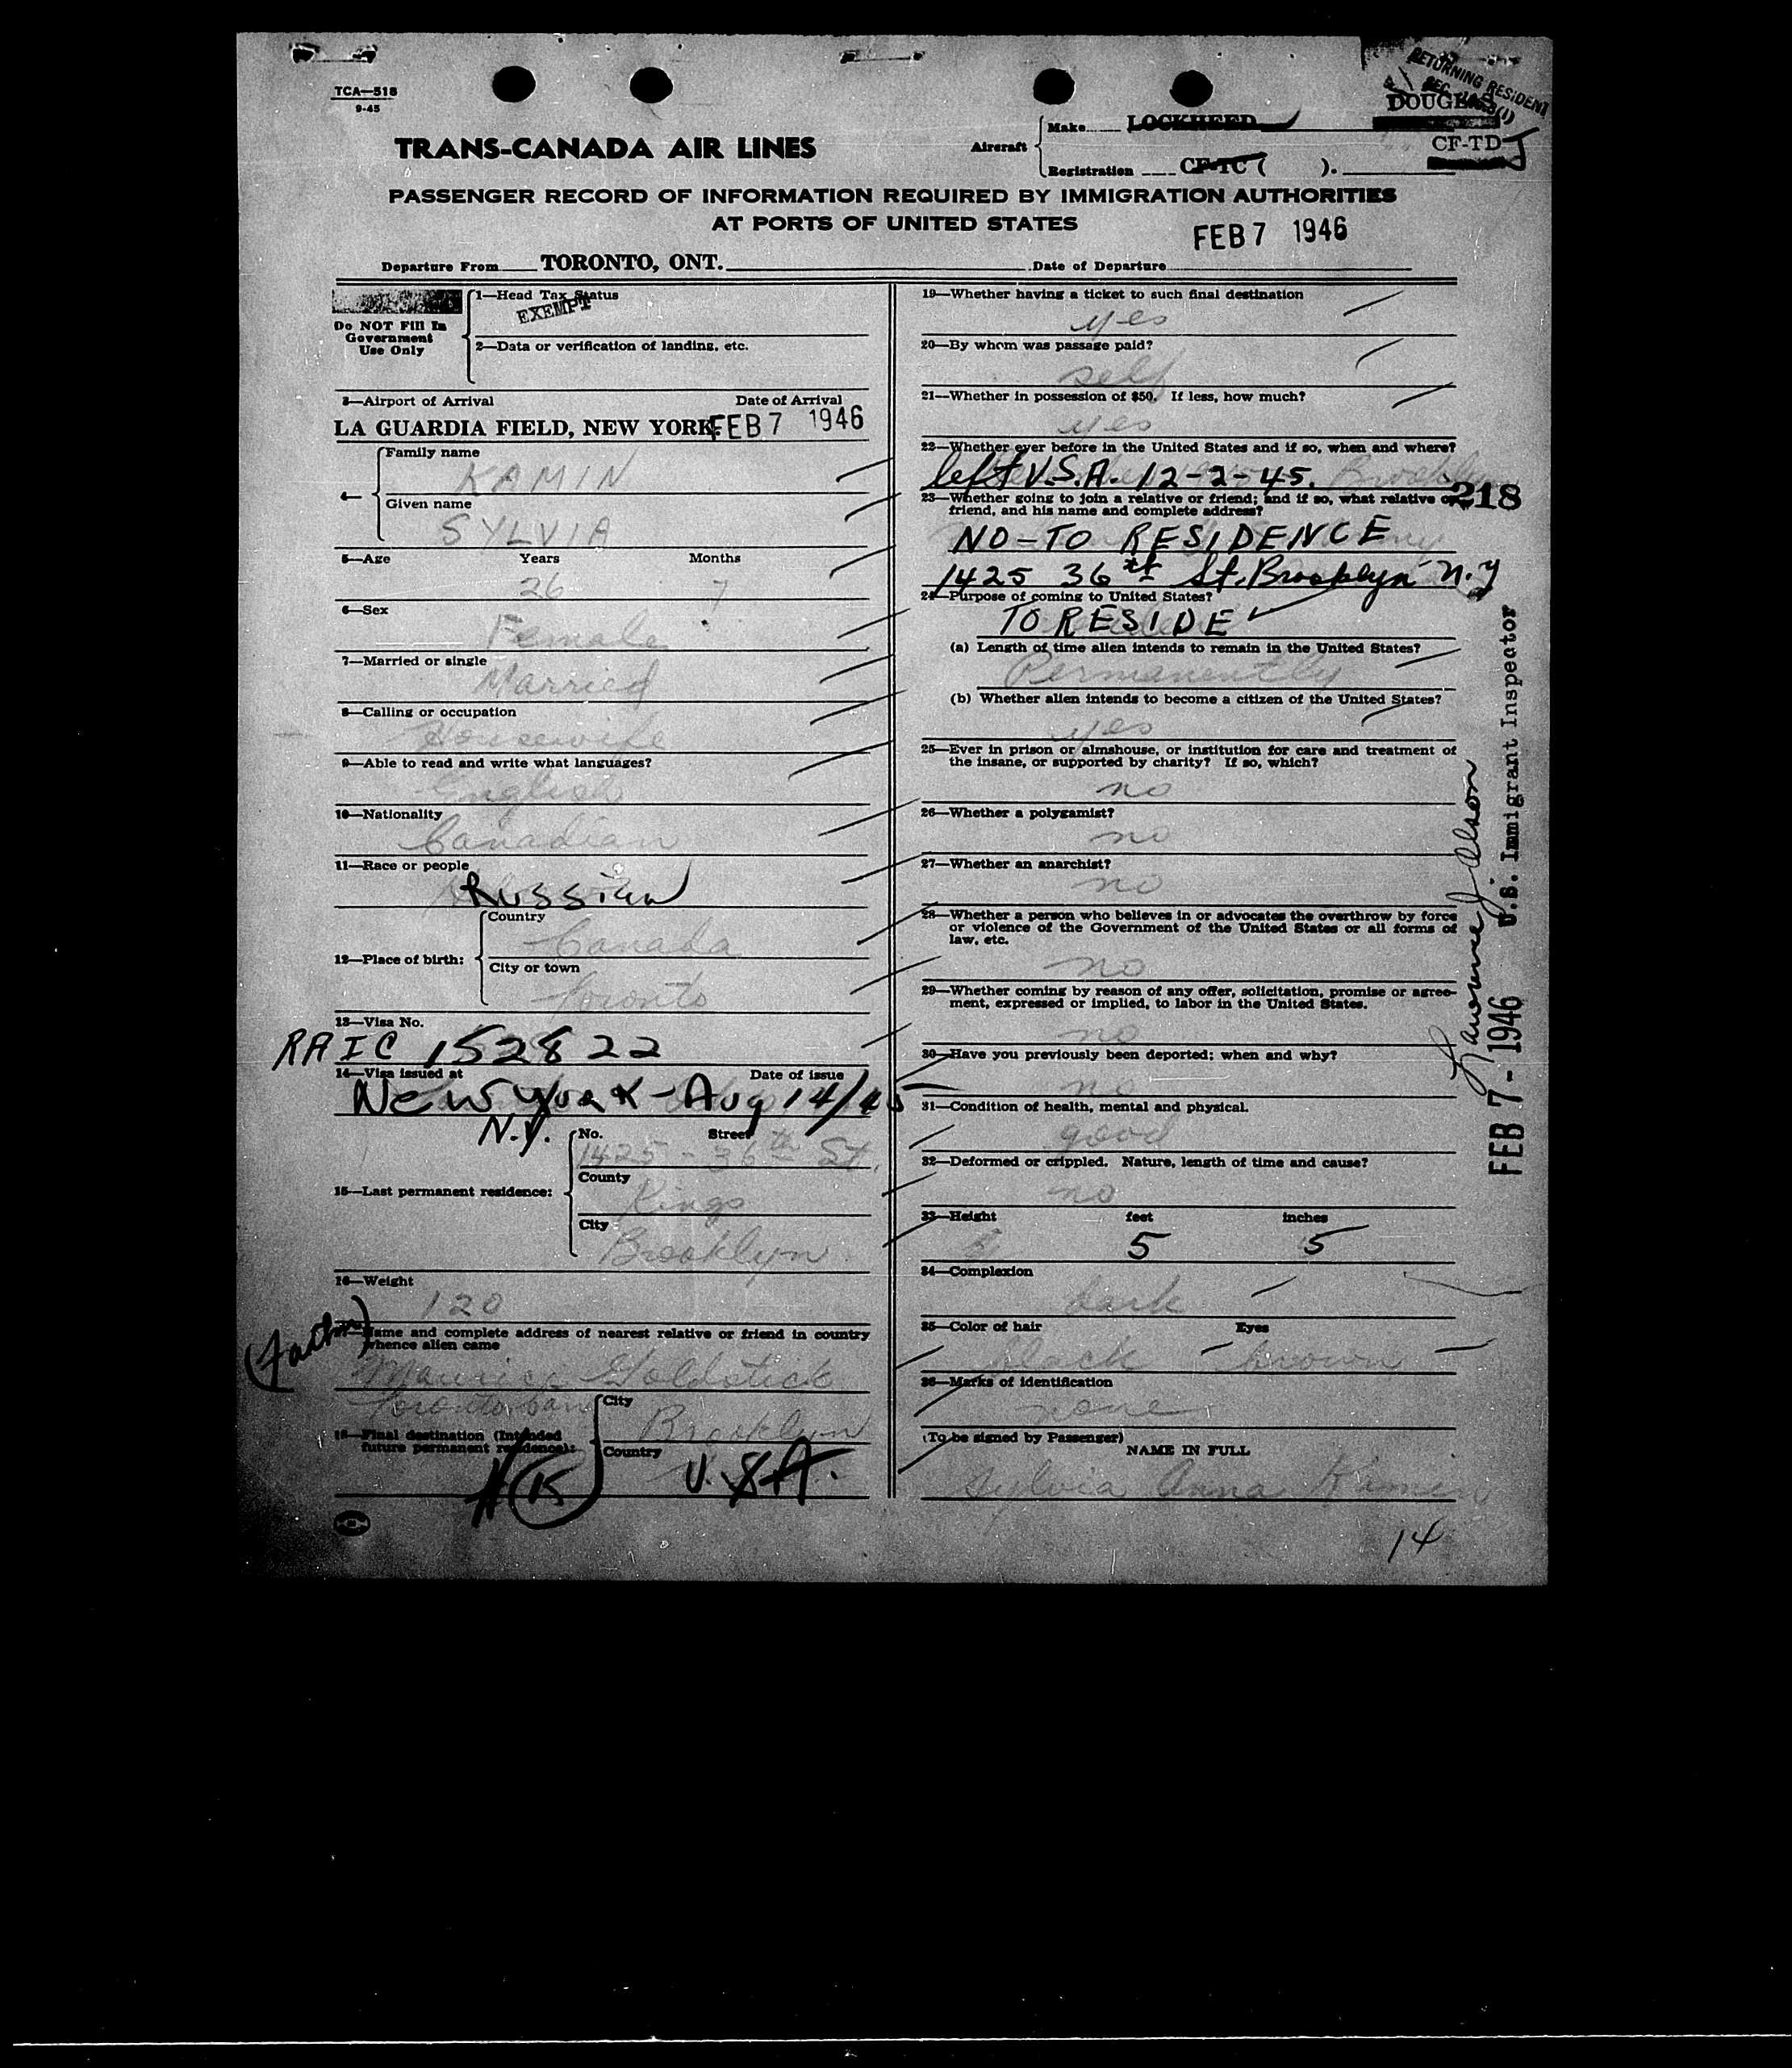 TCA—518
9-45
RETURNING RESIDENT
DOUGLAS
Make LOCKHEED
TRANS-CANADA AIR LINES
Aircraft
CF-TD J
Registration CF-TC ( ).
PASSENGER RECORD OF INFORMATION REQUIRED BY IMMIGRATION AUTHORITIES
AT PORTS OF UNITED STATES
FEB 7 1946
Departure From TORONTO, ONT. Date of Departure
Do NOT Fill In
Government
Use Only
1—Head Tax Status
EXEMPT
2—Data or verification of landing, etc.
3—Airport of Arrival Date of Arrival
LA GUARDIA FIELD, NEW YORK. FEB 7 1946
4—
Family name
KAMIN
Given name
SYLVIA
5—Age Years Months
26 7
6—Sex
Female
7—Married or single
Married
8—Calling or occupation
Housewife
9—Able to read and write what languages?
English
10—Nationality
Canadian
11—Race or people
Russian
12—Place of birth:
Country
Canada
City or town
Toronto
13—Visa No.
RAIC 152822
14—Visa issued at Date of issue
New York - Aug 14/45
N.Y.
15—Last permanent residence:
No. Street
1425 - 36th St.
County
Kings
City
Brooklyn
16—Weight
120
(Father)
17—Name and complete address of nearest relative or friend in country
whence alien came
Maurice Goldstick
Toronto, Can
18—Final destination (Intended
future permanent residence):
City
Brooklyn
Country
U.S.A.
K
19—Whether having a ticket to such final destination
yes
20—By whom was passage paid?
self
21—Whether in possession of $50. If less, how much?
yes
22—Whether ever before in the United States and if so, when and where?
left U.S.A. 12-2-45. Brooklyn
218
23—Whether going to join a relative or friend; and if so, what relative or
friend, and his name and complete address?
NO - TO RESIDENCE
1425 36th St. Brooklyn N.Y
24—Purpose of coming to United States?
TO RESIDE
(a) Length of time alien intends to remain in the United States?
Permanently
(b) Whether alien intends to become a citizen of the United States?
yes
25—Ever in prison or almshouse, or institution for care and treatment of
the insane, or supported by charity? If so, which?
no
26—Whether a polygamist?
no
27—Whether an anarchist?
no
28—Whether a person who believes in or advocates the overthrow by force
or violence of the Government of the United States or all forms of
law, etc.
no
29—Whether coming by reason of any offer, solicitation, promise or agree-
ment, expressed or implied, to labor in the United States.
no
30—Have you previously been deported; when and why?
no
31—Condition of health, mental and physical.
good
32—Deformed or crippled. Nature, length of time and cause?
no
33—Height feet inches
5 5
34—Complexion
dark
35—Color of hair Eyes
black - brown
36—Marks of identification
none
(To be signed by Passenger)
NAME IN FULL
Sylvia Anna Kamin
14
U.S. Immigrant Inspector
FEB 7 - 1946